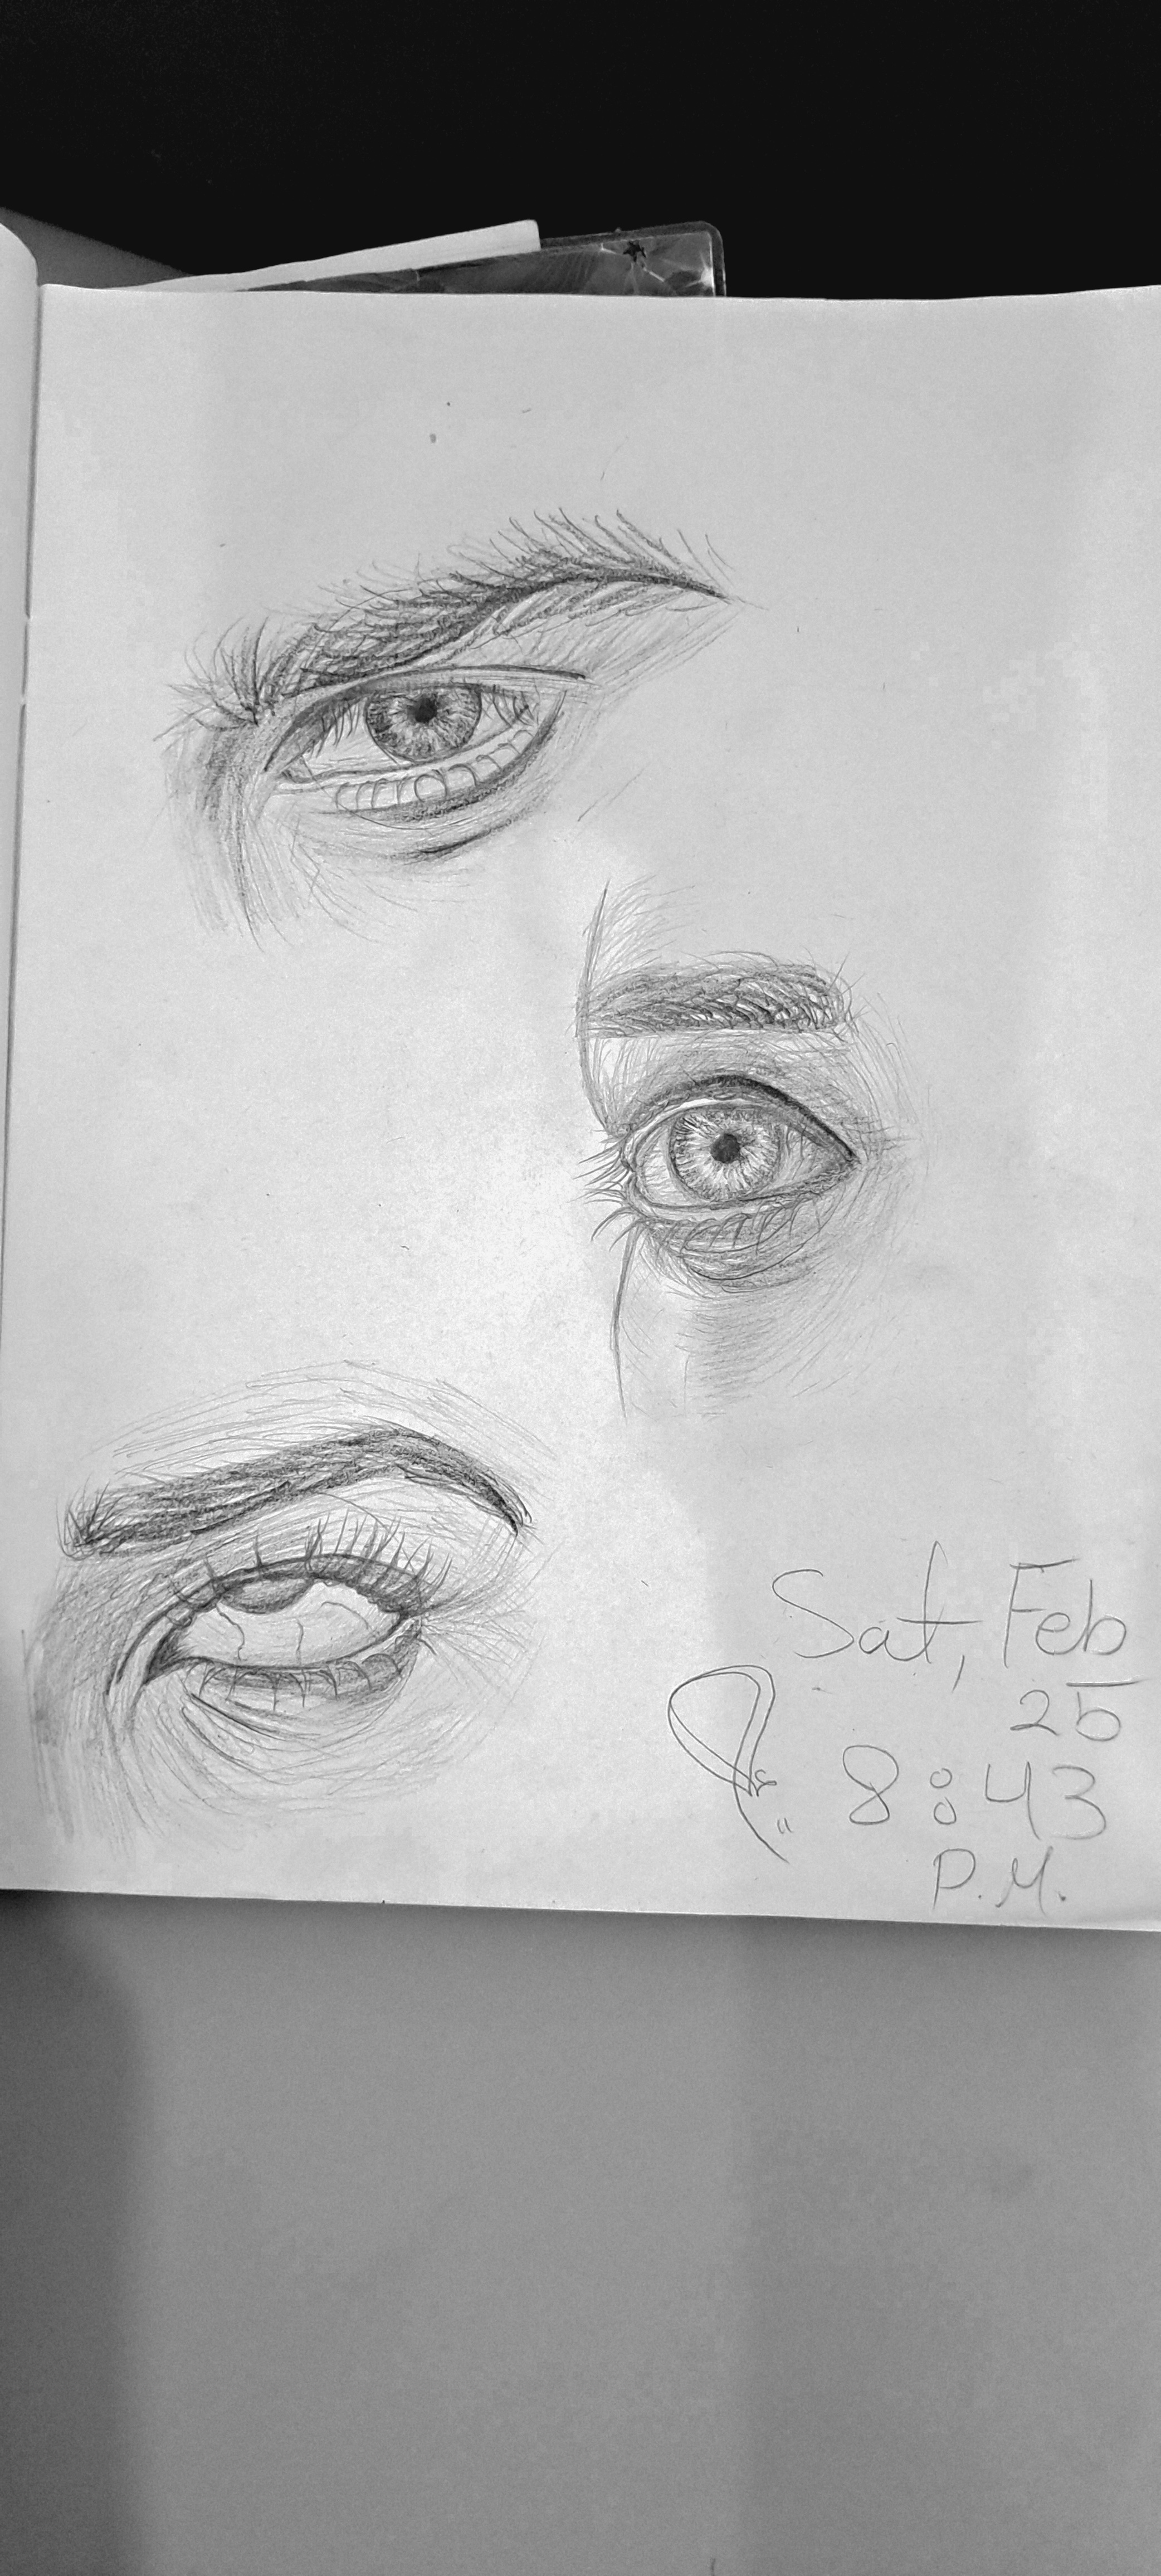 Sat, Feb
25
8:43
P.M.